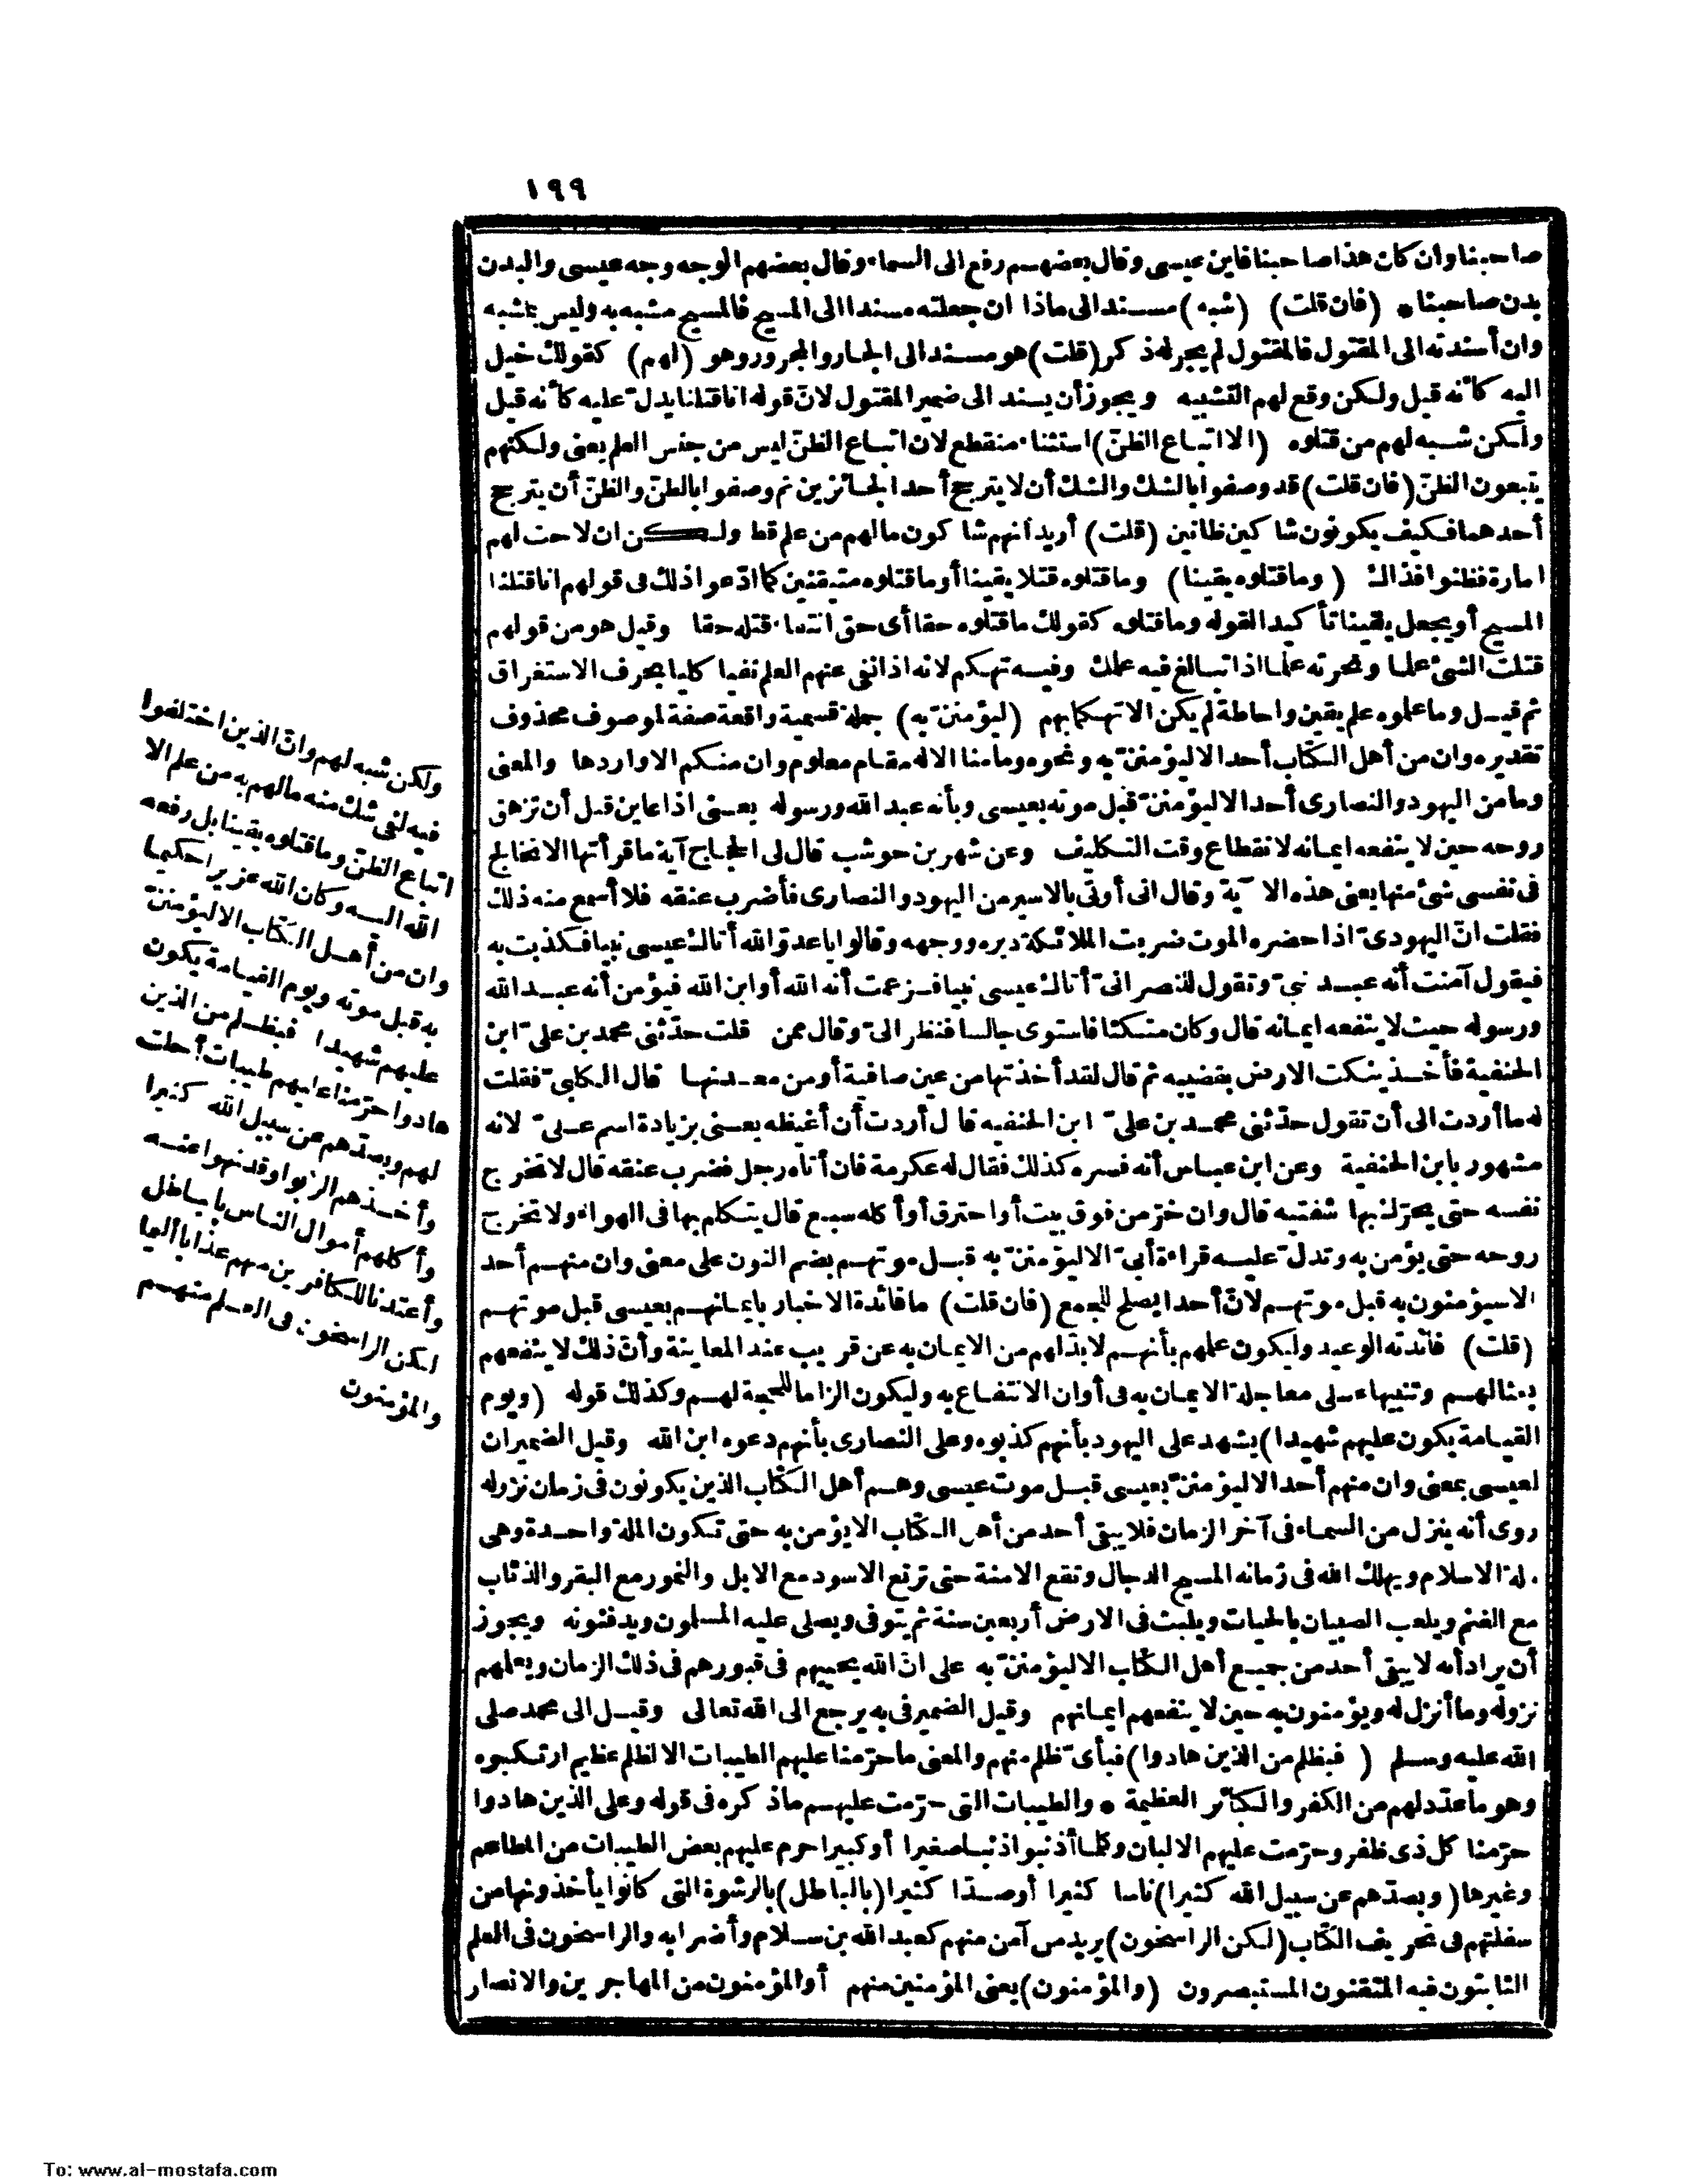 ١٩٩
صاحبنا وان كان هذا صاحبنا فاين عيسى وقال بعضهم رفع الى السماء وقال بعضهم الوجه وجه عيسى والبدن
بدن صاحبنا * (فان قلت) (شبه) مسند الى ماذا ان جعلته مسندا الى المسيح فالمسيح مشبه به وليس بمشبه
وان أسندته الى المقتول فالمقتول لم يجر له ذكر (قلت) هو مسند الى الجار والمجرور وهو (لهم) كقولك خيل
اليه كأنه قيل ولكن وقع لهم التشبيه ويجوز أن يسند الى ضمير المقتول لانّ قوله انا قتلنا يدلّ عليه كأنه قيل
ولكن شبه لهم من قتلوه (الا اتباع الظنّ) استثناء منقطع لان اتباع الظنّ ليس من جنس العلم يعنى ولكنهم
يتبعون الظنّ (فان قلت) قد وصفوا بالشك والشك أن لا يترجح أحد الجائزين ثم وصفوا بالظنّ والظنّ أن يترجح
أحدهما فكيف يكونون شاكين ظانين (قلت) أريد أنهم شاكون مالهم من علم قط ولكن ان لاحت لهم
امارة فظنوا فذاك (وما قتلوه يقينا) وما قتلوه قتلا يقينا أو ما قتلوه متيقنين كما ادّعوا ذلك فى قولهم انا قتلنا
المسيح أو يجعل يقينا تأكيدا لقوله وما قتلوه كقولك ما قتلوه حقا أى حق انتفاء قتله حقا وقيل هو من قولهم
قتلت الشئ علما ونحرته علما اذا تبالغ فيه علمك وفيه تهكم لانه اذا نفى عنهم العلم نفيا كليا بحرف الاستغراق
ثم قيل وما علموه علم يقين واحاطة لم يكن الا تهكما بهم (ليؤمننّ به) جملة قسمية واقعة صفة لموصوف محذوف
تقديره وان من أهل الكتاب أحد الا ليؤمننّ به ونحوه وما منا الا له مقام معلوم وان منكم الا واردها والمعنى
وما من اليهود والنصارى أحد الا ليؤمننّ قبل موته بعيسى وبأنه عبد الله ورسوله يعنى اذا عاين قبل أن تزهق
روحه حين لا ينفعه ايمانه لانقطاع وقت التكليف وعن شهر بن حوشب قال لى الحجاج آية ما قرأتها الا تخالج
فى نفسى شئ منها يعنى هذه الآية وقال انى أوتى بالاسير من اليهود والنصارى فأضرب عنقه فلا أسمع منه ذلك
فقلت انّ اليهودىّ اذا حضره الموت ضربت الملائكة دبره ووجهه وقالوا يا عدوّ الله أتاك عيسى نبيا فكذبت به
فيقول آمنت أنه عبد نبىّ وتقول للنصرانىّ أتاك عيسى نبيا فزعمت أنه الله أو ابن الله فيؤمن أنه عبد الله
ورسوله حيث لا ينفعه ايمانه قال وكان متكئا فاستوى جالسا فنظر الىّ وقال ممن قلت حدّثنى محمد بن علىّ ابن
الحنفية فأخذ ينكت الارض بقضيبه ثم قال لقد أخذتها من عين صافية أو من معدنها قال الكلبىّ فقلت
له ما أردت الى أن تقول حدّثنى محمد بن علىّ ابن الحنفيه قال أردت أن أغيظه يعنى بزيادة اسم علىّ لانه
مشهور بابن الحنفية وعن ابن عباس أنه فسره كذلك فقال له عكرمة فان أتاه رجل فضرب عنقه قال لا تخرج
نفسه حتى يحرّك بها شفتيه قال وان خرّ من فوق بيت أو احترق أو أكله سبع قال يتكلم بها فى الهواء ولا تخرج
روحه حتى يؤمن به وتدلّ عليه قراءة أبىّ الا ليؤمننّ به قبل موتهم بضم النون على معنى وان منهم أحد
الا سيؤمنون به قبل موتهم لانّ أحدا يصلح للجمع (فان قلت) ما فائدة الاخبار بايمانهم بعيسى قبل موتهم
(قلت) فائدته الوعيد وليكون علمهم بأنهم لا بدّ لهم من الايمان به عن قريب عند المعاينة وأنّ ذلك لا ينفعهم
بعثا لهم وتنبيها على معاجلة الايمان به فى أوان الانتفاع به وليكون الزاما للحجة لهم وكذلك قوله (ويوم
القيامة يكون عليهم شهيدا) يشهد على اليهود بأنهم كذبوه وعلى النصارى بأنهم دعوه ابن الله وقيل الضميران
لعيسى بمعنى وان منهم أحد الا ليؤمننّ بعيسى قبل موت عيسى وهم أهل الكتاب الذين يكونون فى زمان نزوله
روى أنه ينزل من السماء فى آخر الزمان فلا يبقى أحد من أهل الكتاب الا يؤمن به حتى تكون الملة واحدة وهى
ملة الاسلام ويهلك الله فى زمانه المسيح الدجال وتقع الامنة حتى ترتع الاسود مع الابل والنمور مع البقر والذئاب
مع الغنم ويلعب الصبيان بالحيات ويلبث فى الارض أربعين سنة ثم يتوفى ويصلى عليه المسلمون ويدفنونه ويجوز
أن يراد أنه لا يبقى أحد من جميع أهل الكتاب الا ليؤمننّ به على انّ الله يحييهم فى قبورهم فى ذلك الزمان ويعلمهم
نزوله وما أنزل له ويؤمنون به حين لا ينفعهم ايمانهم وقيل الضمير فى به يرجع الى الله تعالى وقيل الى محمد صلى
الله عليه وسلم (فبظلم من الذين هادوا) فبأىّ ظلم منهم والمعنى ما حرّمنا عليهم الطيبات الا لظلم عظيم ارتكبوه
وهو ما عدّد لهم من الكفر والكبائر العظيمة * والطيبات التى حرّمت عليهم ما ذكره فى قوله وعلى الذين هادوا
حرّمنا كل ذى ظفر وحرّمت عليهم الالبان وكلما أذنبوا ذنبا صغيرا أو كبيرا حرم عليهم بعض الطيبات من المطاعم
وغيرها (وبصدّهم عن سبيل الله كثيرا) ناسا كثيرا أو صدّا كثيرا (بالباطل) بالرشوة التى كانوا يأخذونها من
سفلتهم فى تحريف الكتاب (لكن الراسخون) يريد من آمن منهم كعبد الله بن سلام وأضرابه والراسخون فى العلم
الثابتون فيه المتقنون المستبصرون (والمؤمنون) يعنى المؤمنين منهم أو المؤمنون من المهاجرين والانصار
ولكن شبه لهم وانّ الذين اختلفوا
فيه لفى شك منه مالهم به من علم الا
اتباع الظنّ وما قتلوه يقينا بل رفعه
الله اليه وكان الله عزيزا حكيما
وان من أهل الكتاب الا ليؤمننّ
به قبل موته ويوم القيامة يكون
عليهم شهيدا فبظلم من الذين
هادوا حرّمنا عليهم طيبات أحلت
لهم وبصدّهم عن سبيل الله كثيرا
وأخذهم الربوا وقد نهوا عنه
وأكلهم أموال الناس بالباطل
وأعتدنا للكافرين منهم عذابا أليما
لكن الراسخون فى العلم منهم
والمؤمنون
To: www.al-mostafa.com